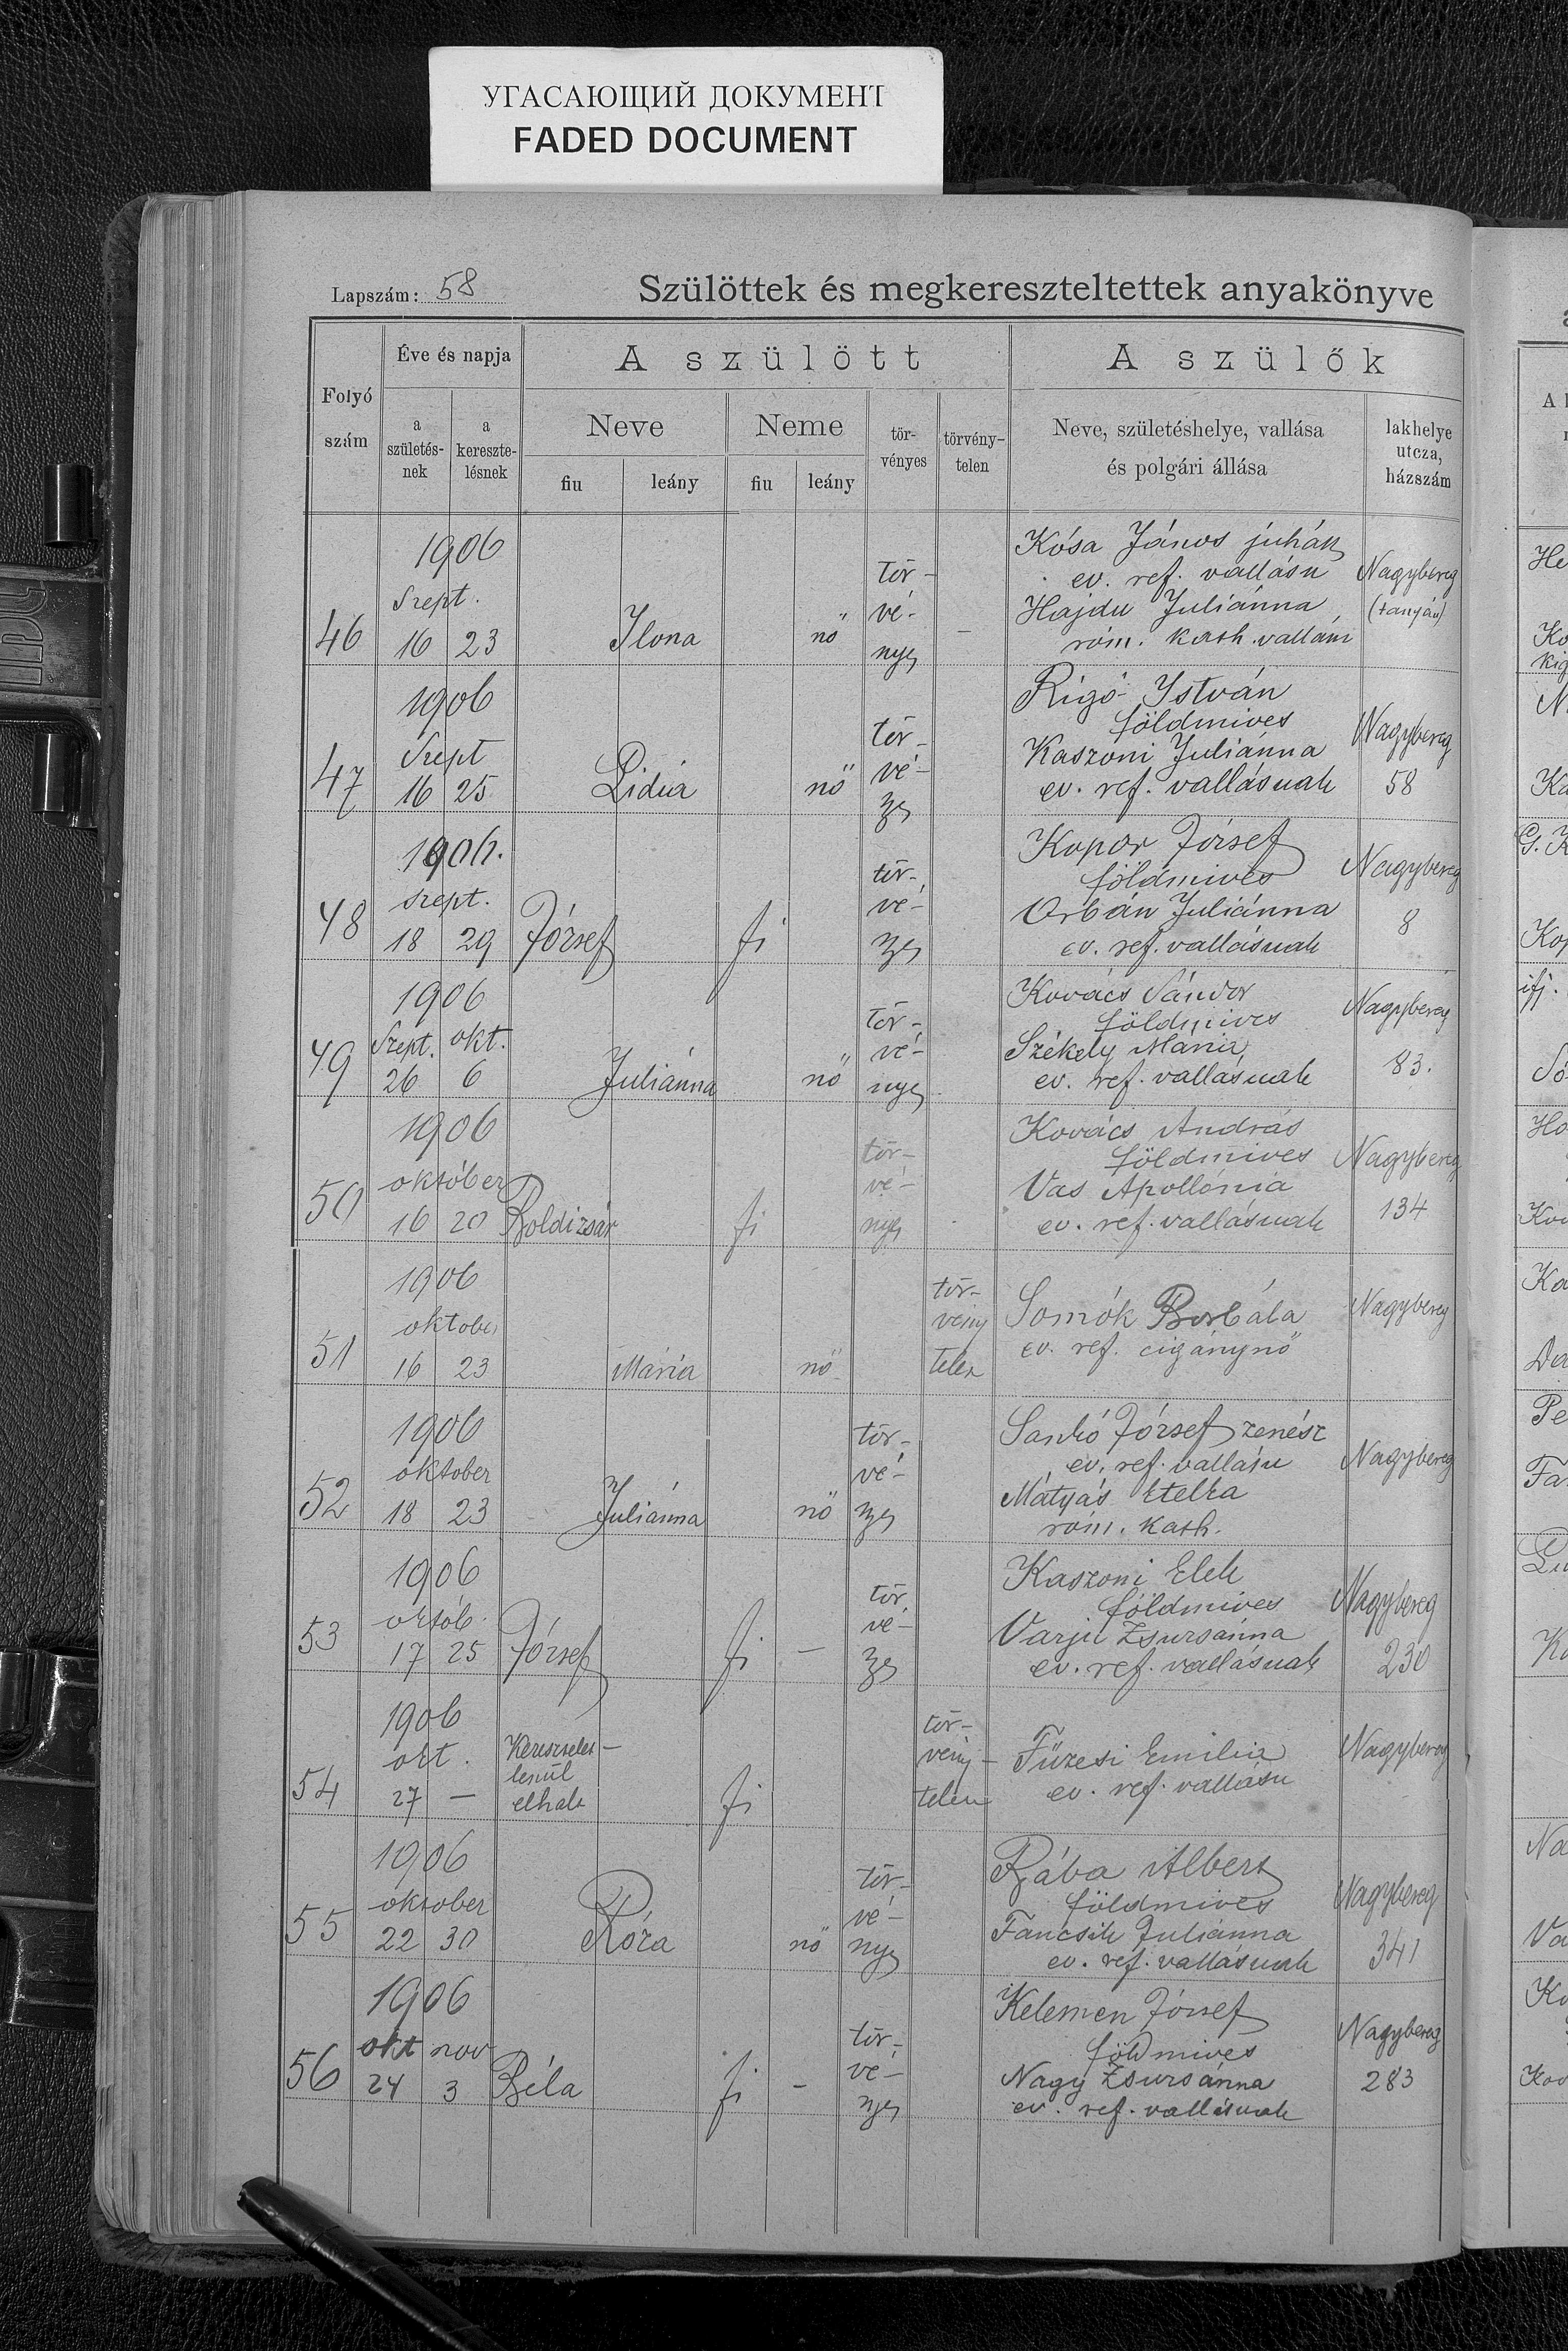 УГАСАЮЩИЙ ДОКУМЕНТ
FADED DOCUMENT
Lapszám: 58
Szülöttek és megkereszteltettek anyakönyve
Folyó szám
Éve és napja
a születés-nek
a kereszte-lésnek
A szülött
Neve
fiu
leány
Neme
fiu
leány
tör-vényes
törvény-telen
A szülők
Neve, születéshelye, vallása
és polgári állása
lakhelye
utcza,
házszám
46
1906
Szept.
16 23
Ilona
nő
tör-
vé-
nyes
–
Kósa János juhász
ev. ref. vallásu
Hajdu Juliánna
róm. kath. vallásu
Nagybereg
(tanyán)
47
1906
Szept
16 25
Lidia
nő
tör-
vé-
nyes
Rigó István
földmives
Kaszoni Juliánna
ev. ref. vallásuak
Nagybereg
58
48
1906.
szept.
18 29
József
fi
tör-
vé-
nyes
Kopor József
földmives
Orbán Juliánna
ev. ref. vallásuak
Nagybereg
8
49
1906
Szept. okt.
26 6
Juliánna
nő
tör-
vé-
nyes
Kovács Sándor
földmives
Székely Mária
ev. ref. vallásuak
Nagybereg
83.
50
1906
október
16 20
Boldizsár
fi
tör-
vé-
nyes
Kovács András
földmives
Vas Apollónia
ev. ref. vallásuak
Nagybereg
134
51
1906
oktober
16 23
Mária
nő
tör-
vény
telen
Somók Borbála
ev. ref. cigánynő
Nagybereg
52
1906
oktober
18 23
Juliánna
nő
tör-
vé-
nyes
Sankó József zenész
ev. ref. vallásu
Mátyás Etelka
róm. kath.
Nagybereg
53
1906
októb.
17 25
József
fi
–
tör
vé-
nyes
Kaszoni Elek
földmives
Varju Zsuzsánna
ev. ref. vallásuak
Nagybereg
230
54
1906
okt.
27 –
Keresztelet-
lenül
elhalt
fi
tör-
vény-
telen
Füzesi Emilia
ev. ref. vallásu
Nagybereg
55
1906
oktober
22 30
Róza
nő
tör-
vé-
nyes
Rába Albert
földmives
Fancsik Juliánna
ev. ref. vallásuak
Nagybereg
341
56
1906
okt nov
24 3
Béla
fi
–
tör-
vé-
nyes
Kelemen József
földmives
Nagy Zsuzsánna
ev. ref. vallásuak
Nagybereg
283